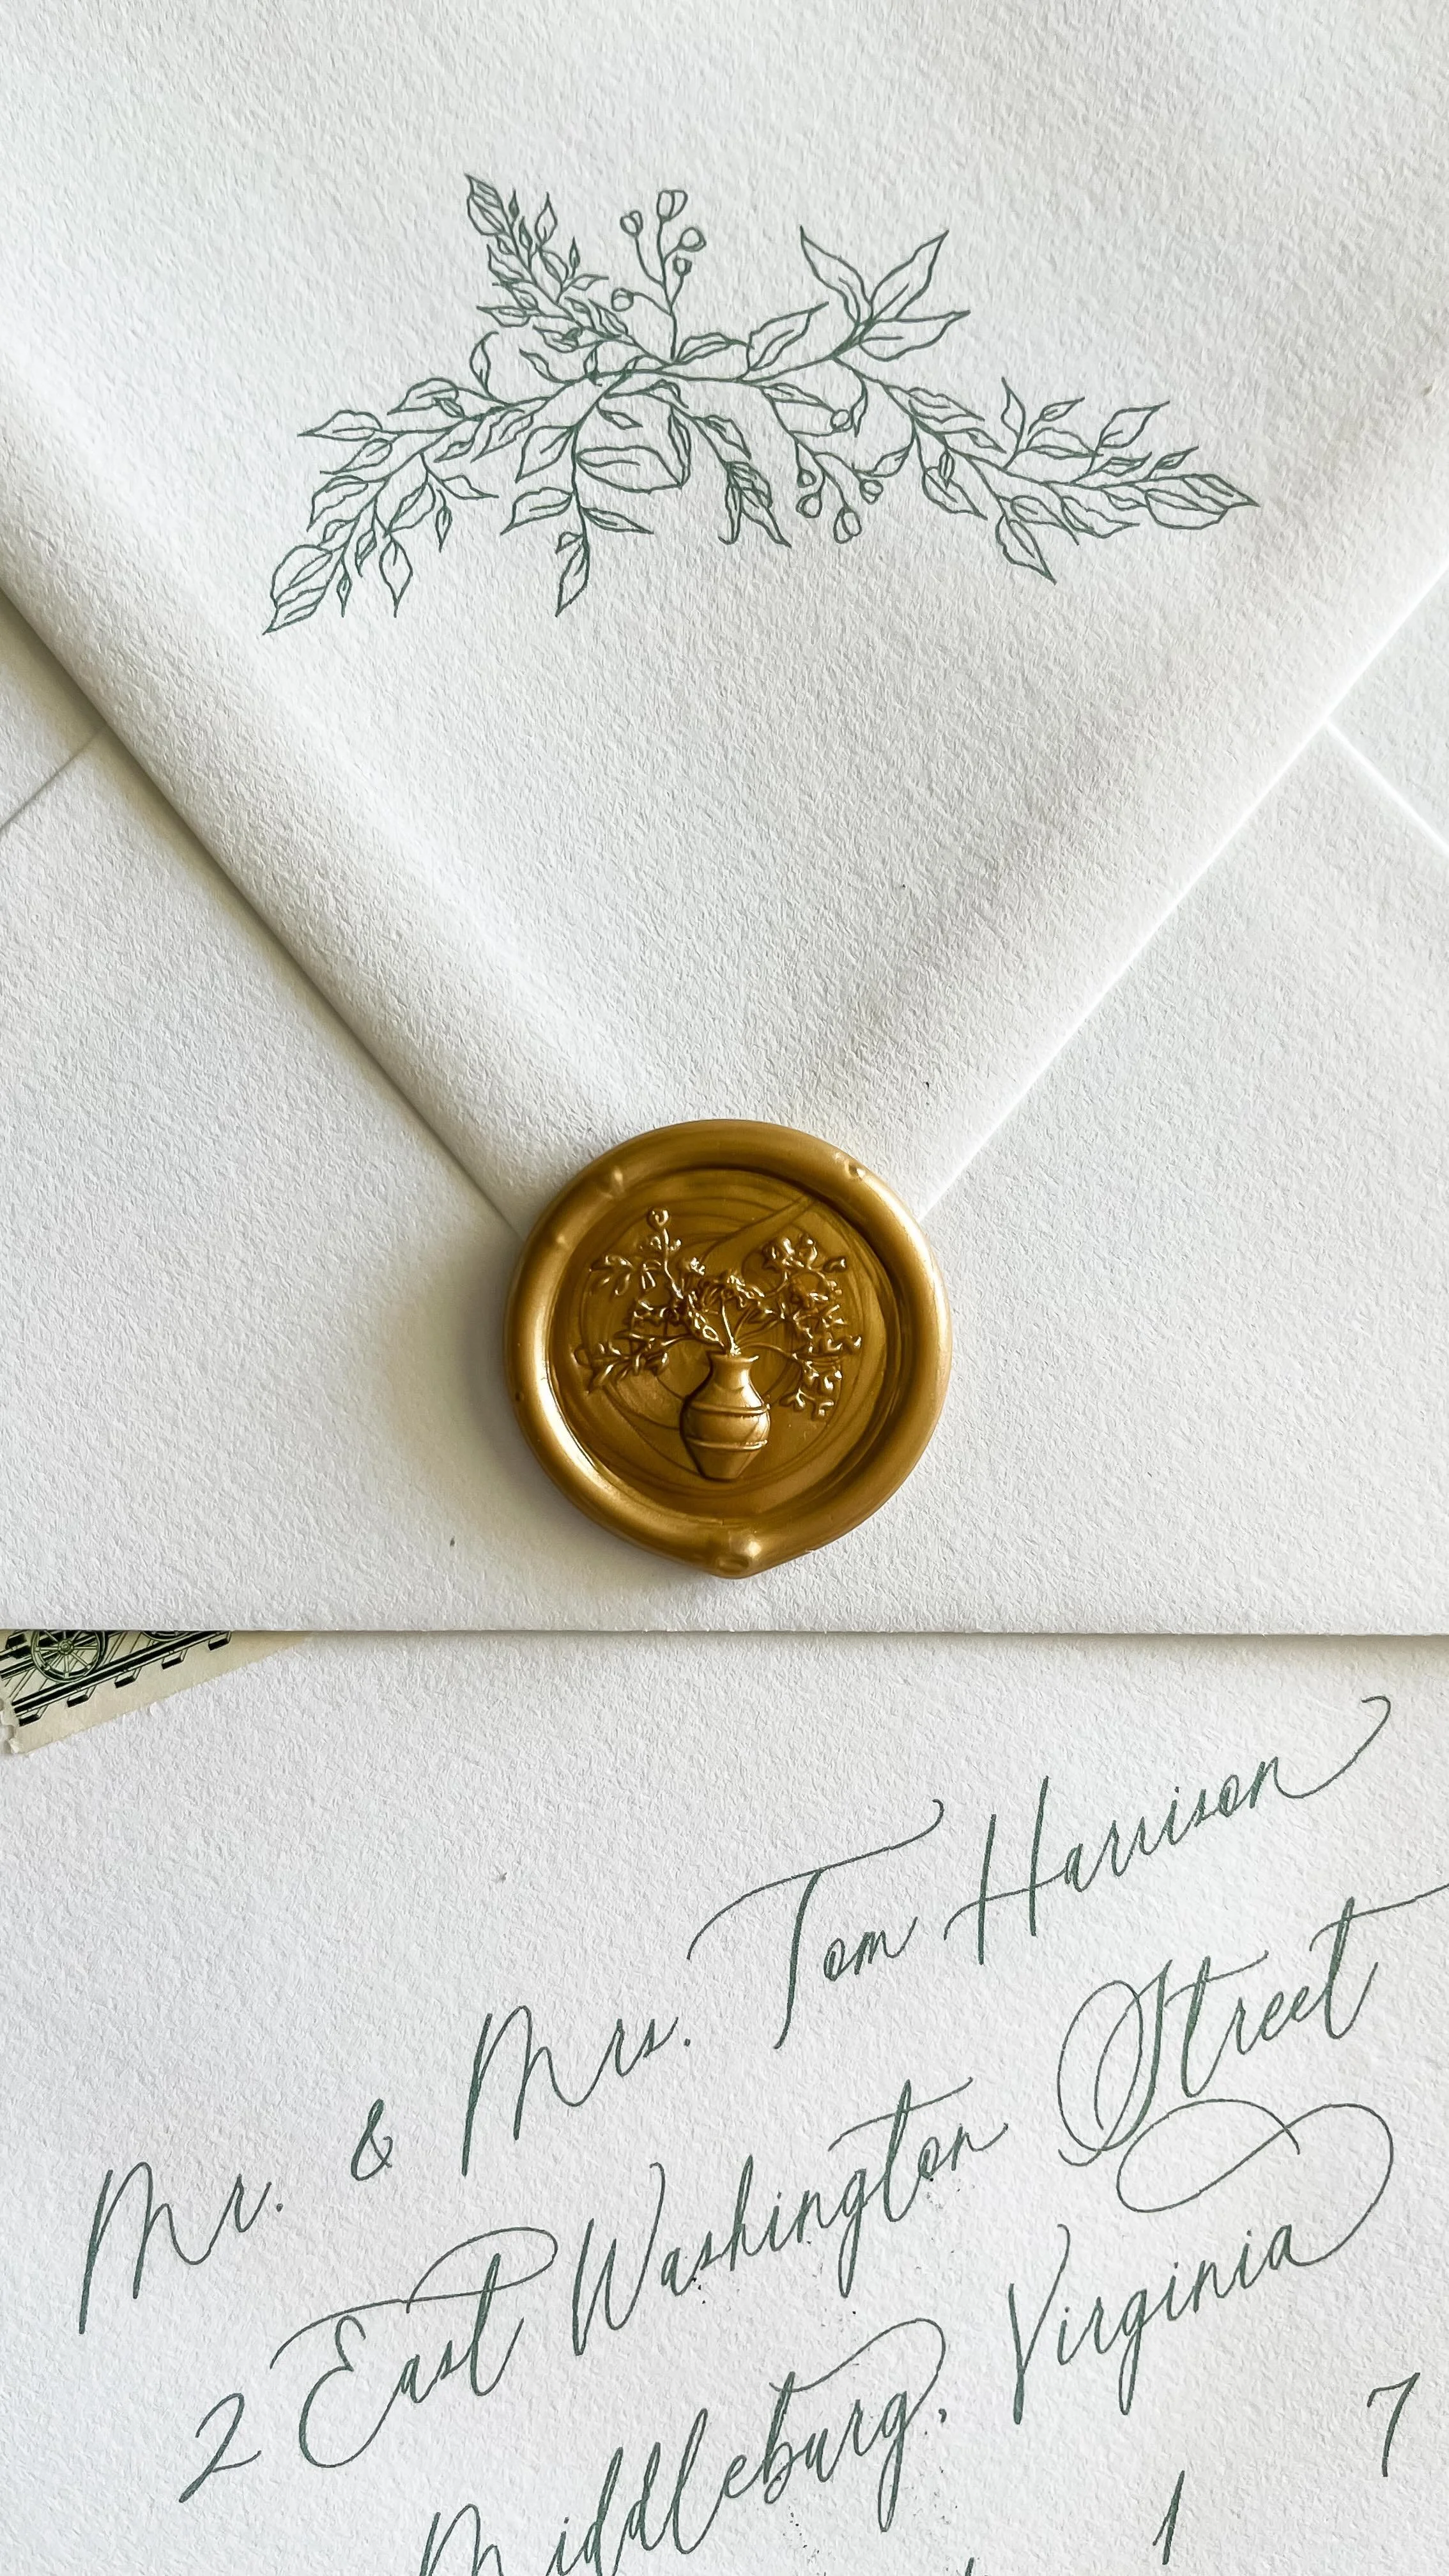 Mr. & Mrs. Tom Harrison
2 East Washington Street
Middleburg, Virginia
1 7